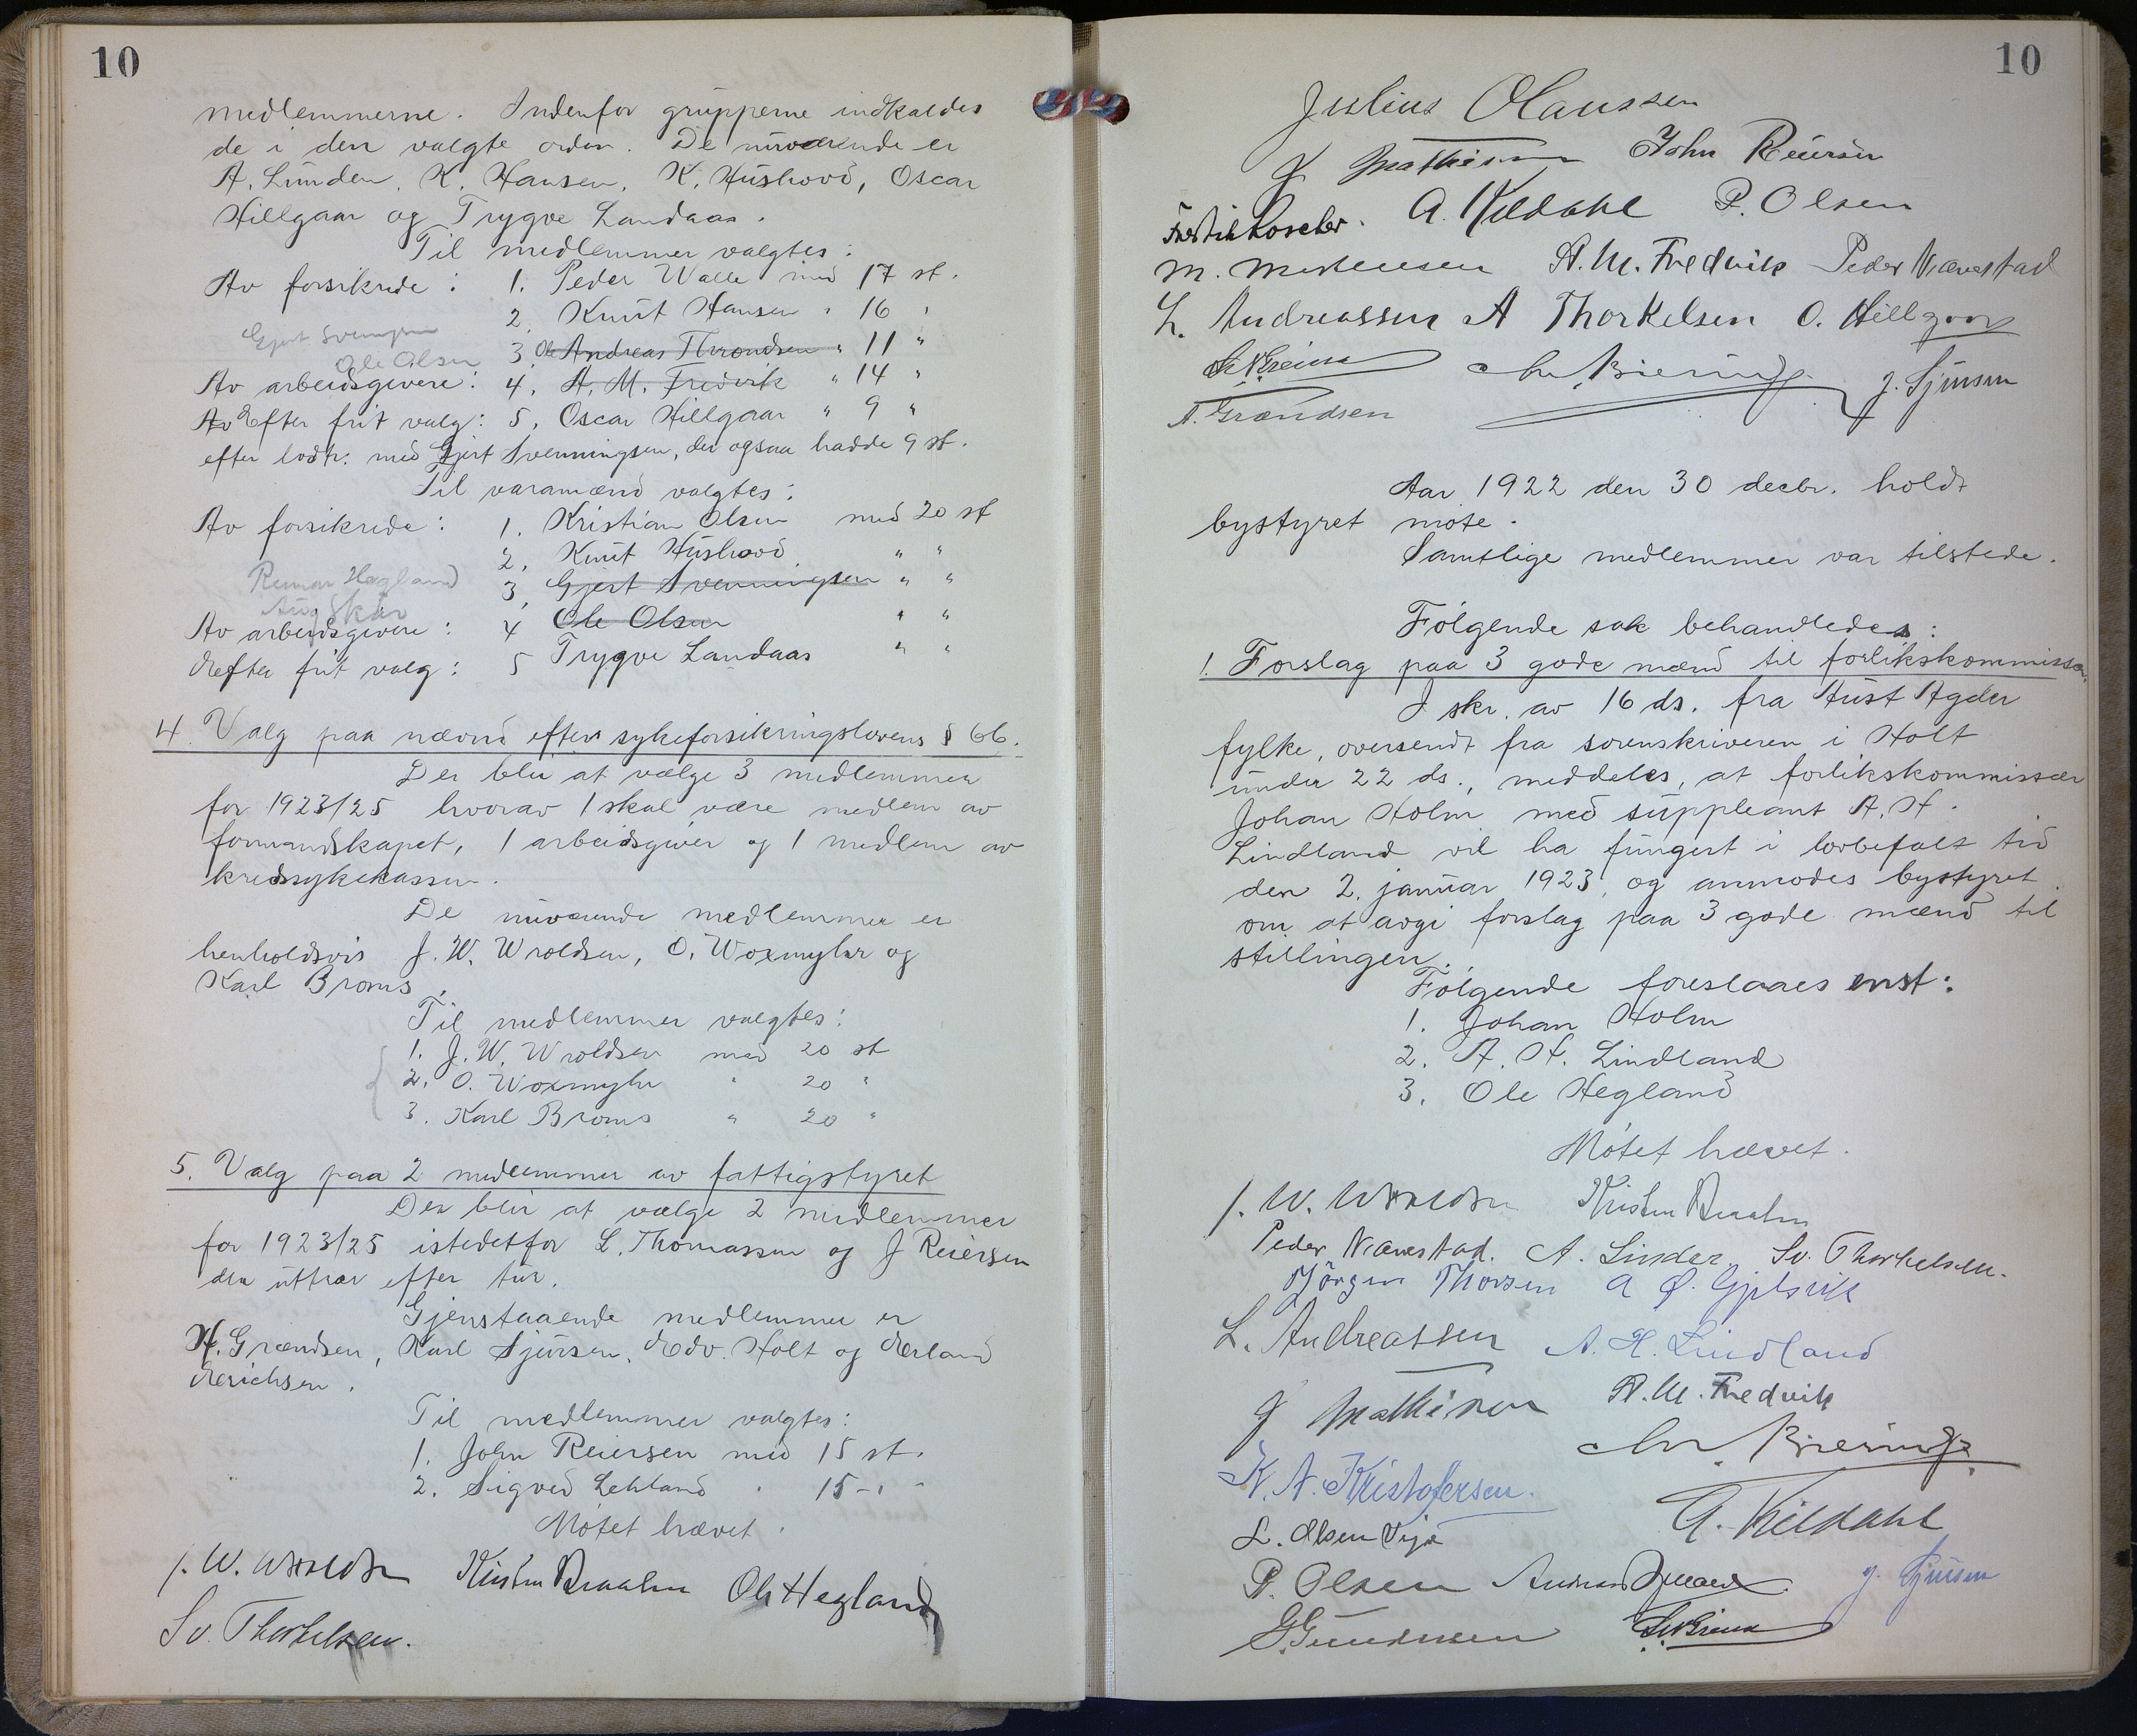 10
medlemmerne. Indenfor grupperne indkaldes
de i den valgte orden. De nuværende er
A. Lunden, K. Hansen, K. Hushovd, Oscar
Hillgaar og Trygve Landaas.
Til medlemmer valgtes:
Av forsikrede: 1. Peder Walle med 17 st.
2. Knut Hansen " 16 "
Gjert Svenningsen
3. Andreas Throndsen " 11 "
Ole Olsen
Av arbeidsgivere: 4. A. M. Fredvik " 14 "
Efter frit valg: 5. Oscar Hillgaar " 9 "
efter lodtr. med Gjert Svenningsen, der ogsaa hadde 9 st.
Til varamænd valgtes:
Av forsikrede: 1. Kristian Olsen med 20 st
2. Knut Hushovd " "
Hegland
3. Gjert Svenningsen " "
Aug Skår
Av arbeidsgivere: 4 Ole Olsen " "
Efter frit valg: 5 Trygve Landaas " "
4. Valg paa nævnd efter sykeforsikringslovens § 66.
Der blir at vælge 3 medlemmer
for 1923/25 hvorav 1 skal være medlem av
formandskapet, 1 arbeidsgiver og 1 medlem av
kredssykekassen.
De nuværende medlemmer er
henholdsvis J. W. Wroldsen, O. Woxmyhr og
Karl Broms.
Til medlemmer valgtes:
1. J. W. Wroldsen med 20 st
2. O. Woxmyhr " 20 "
3. Karl Broms " 20 "
5. Valg paa 2 medlemmer av fattigstyret
Der blir at vælge 2 medlemmer
for 1923/25 istedetfor L. Thomassen og J Reiersen
der uttrær efter tur.
Gjenstaaende medlemmer er
N. Grændsen, Karl Sjursen, Edv. Holt og Erland
Erichsen.
Til medlemmer valgtes:
1. John Reiersen med 15 st.
2. Sigvd Lekland " 15 - " -
Møtet hævet.
J. W. Wroldsen Kristen Braalen Ole Hegland
Sv. Thorkelsen.
10
Julius Olaussen
J Mathisen John Reiersen
A. Kildahl P. Olsen
M. Mortensen A. M. Fredvik Peder Nævestad
L. Andreassen A Thorkelsen O. Hillgaar
Chr. Bierring J. Sjursen
N. Grændsen
Aar 1922 den 30 decbr. holdt
bystyret møte.
Samtlige medlemmer var tilstede.
Følgende sak behandledes:
1. Forslag paa 3 gode mænd til forlikskommissær.
I skr. av 16 ds. fra Aust Agder
fylke, oversendt fra sorenskriveren i Holt
under 22 ds., meddeles, at forlikskommissær
Johan Holm med suppleant A. H.
Lindland vil ha fungert i lovbefalt tid
den 2. januar 1923, og anmodes bystyret
om at avgi forslag paa 3 gode mænd til
stillingen.
Følgende foreslaaes enst:
1. Johan Holm
2. A. H. Lindland
3. Ole Hegland
Møtet hævet.
J. W. Wroldsen Kristen Braalen
Peder Nævestad. A. Linder, Sv. Thorkelsen.
Jörgen Thorsen A Ø. Gjelsvik
L. Andreassen A. H. Lindland
J Mathisen A. M. Fredvik
Chr. Bierring
K. N. Kristofersen.
A. Kildahl
L. Olsen Veje
P. Olsen J. Sjursen
G. Gundersen